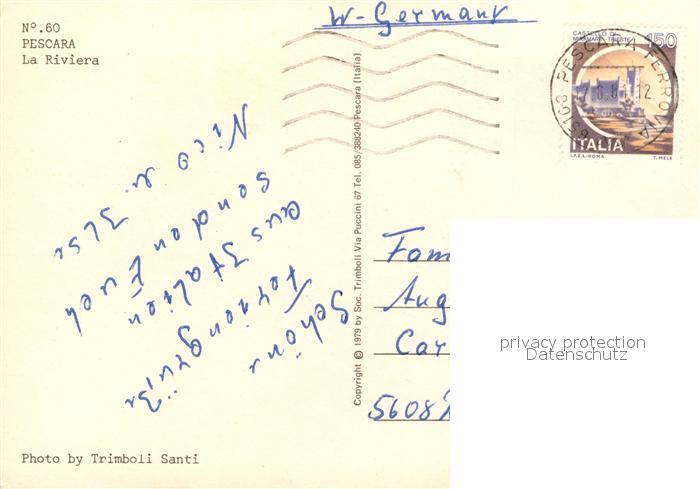 Nº.60
PESCARA
La Riviera
W-Germany
CASTELLO DI
MIRAMARE-TRIESTE 150
65108 PESCARA FERROVIA
12
ITALIA
I.P.Z.S.-ROMA T. MELE
Schöne
Feriengrüße
aus Italien
senden Euch
Nico u. Ilse
Copyright © 1979 by Soc. Trimboli Via Puccini 67 Tel. 085/388240 Pescara (Italia)
Fam
Aug
Car
5608
privacy protection
Datenschutz
Photo by Trimboli Santi